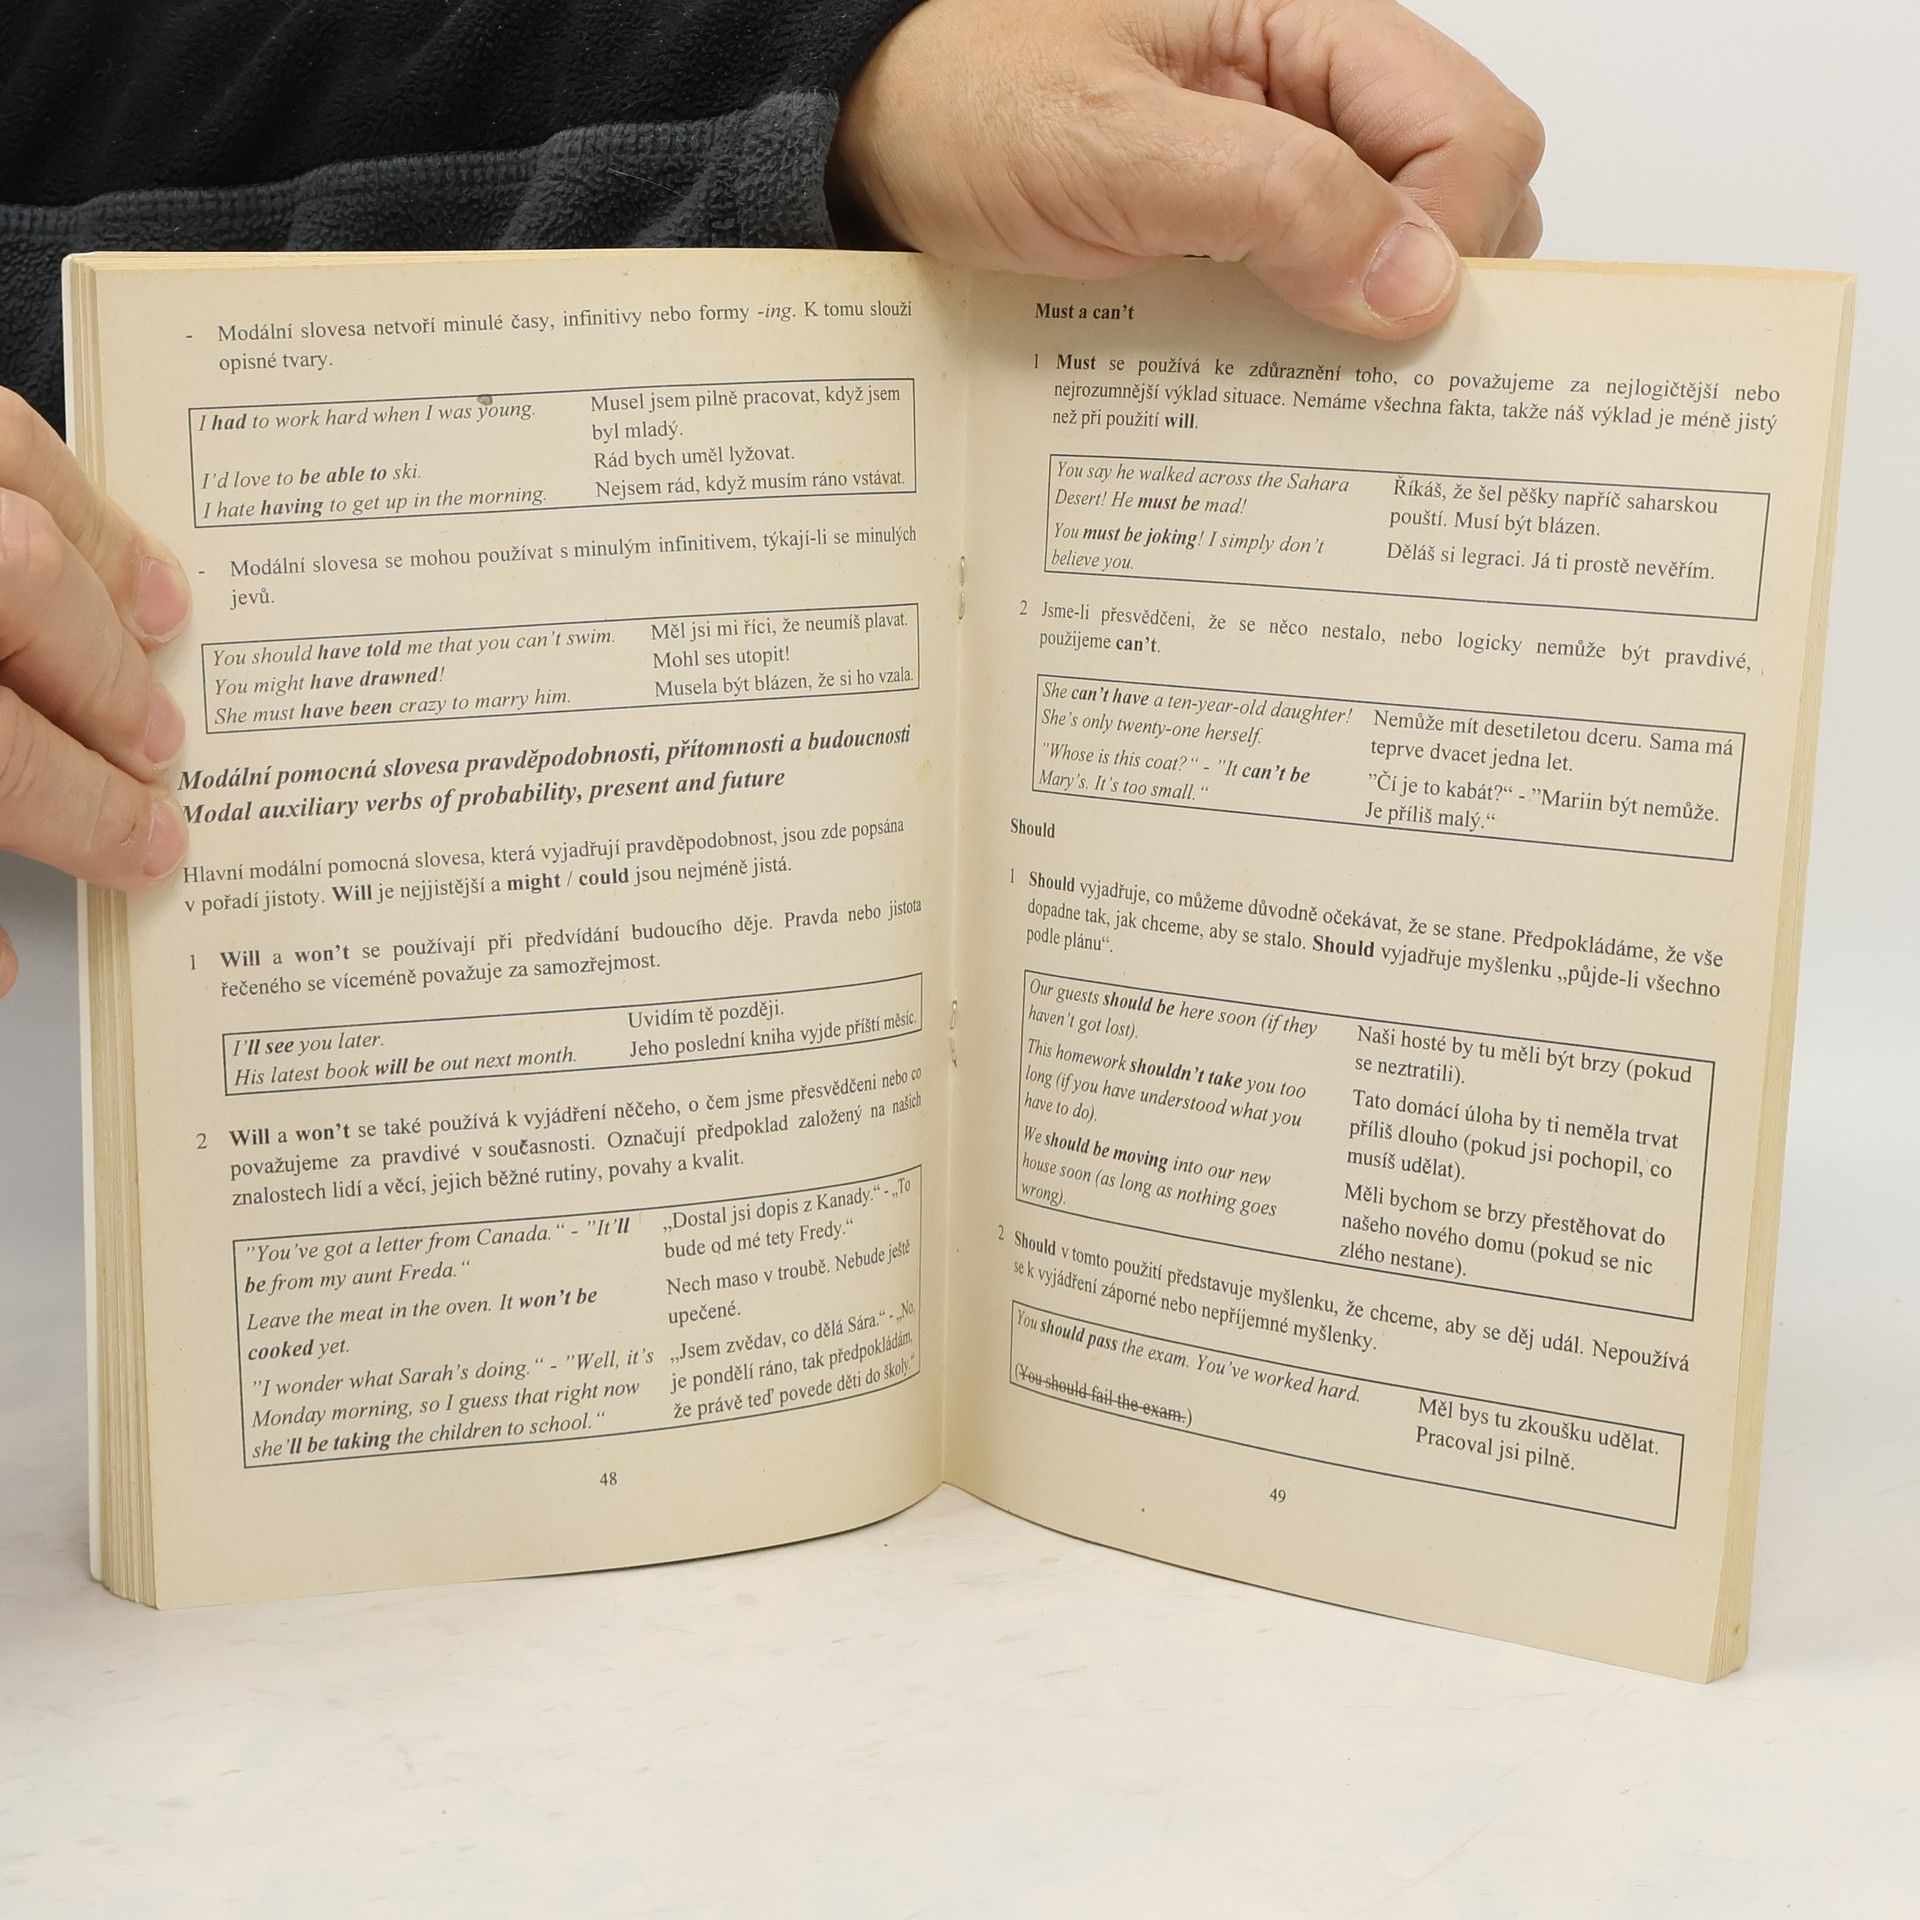 - Modální slovesa netvoří minulé časy, infinitivy nebo formy -ing. K tomu slouží
opisné tvary.
I had to work hard when I was young.
Musel jsem pilně pracovat, když jsem
byl mladý.
I'd love to be able to ski.
Rád bych uměl lyžovat.
I hate having to get up in the morning.
Nejsem rád, když musím ráno vstávat.
- Modální slovesa se mohou používat s minulým infinitivem, týkají-li se minulých
jevů.
You should have told me that you can't swim.
Měl jsi mi říci, že neumíš plavat.
You might have drawned!
Mohl ses utopit!
She must have been crazy to marry him.
Musela být blázen, že si ho vzala.
Modální pomocná slovesa pravděpodobnosti, přítomnosti a budoucnosti
Modal auxiliary verbs of probability, present and future
Hlavní modální pomocná slovesa, která vyjadřují pravděpodobnost, jsou zde popsána
v pořadí jistoty. Will je nejjistější a might / could jsou nejméně jistá.
1 Will a won't se používají při předvídání budoucího děje. Pravda nebo jistota
řečeného se víceméně považuje za samozřejmost.
I'll see you later.
Uvidím tě později.
His latest book will be out next month.
Jeho poslední kniha vyjde příští měsíc.
2 Will a won't se také používá k vyjádření něčeho, o čem jsme přesvědčeni nebo co
považujeme za pravdivé v současnosti. Označují předpoklad založený na našich
znalostech lidí a věcí, jejich běžné rutiny, povahy a kvalit.
"You've got a letter from Canada.“ - "It'll
be from my aunt Freda.“
„Dostal jsi dopis z Kanady.“ - „To
bude od mé tety Fredy.“
Leave the meat in the oven. It won't be
cooked yet.
Nech maso v troubě. Nebude ještě
upečené.
"I wonder what Sarah's doing.“ - "Well, it's
Monday morning, so I guess that right now
she'll be taking the children to school.“
„Jsem zvědav, co dělá Sára.“ - „No,
je pondělí ráno, tak předpokládám,
že právě teď povede děti do školy.“
48
Must a can't
1 Must se používá ke zdůraznění toho, co považujeme za nejlogičtější nebo
nejrozumnější výklad situace. Nemáme všechna fakta, takže náš výklad je méně jistý
než při použití will.
You say he walked across the Sahara
Desert! He must be mad!
Říkáš, že šel pěšky napříč saharskou
pouští. Musí být blázen.
You must be joking! I simply don't
believe you.
Děláš si legraci. Já ti prostě nevěřím.
2 Jsme-li přesvědčeni, že se něco nestalo, nebo logicky nemůže být pravdivé,
použijeme can't.
She can't have a ten-year-old daughter!
She's only twenty-one herself.
Nemůže mít desetiletou dceru. Sama má
teprve dvacet jedna let.
"Whose is this coat?“ - "It can't be
Mary's. It's too small.“
"Čí je to kabát?“ - "Mariin být nemůže.
Je příliš malý.“
Should
1 Should vyjadřuje, co můžeme důvodně očekávat, že se stane. Předpokládáme, že vše
dopadne tak, jak chceme, aby se stalo. Should vyjadřuje myšlenku „půjde-li všechno
podle plánu“.
Our guests should be here soon (if they
haven't got lost).
Naši hosté by tu měli být brzy (pokud
se neztratili).
This homework shouldn't take you too
long (if you have understood what you
have to do).
Tato domácí úloha by ti neměla trvat
příliš dlouho (pokud jsi pochopil, co
musíš udělat).
We should be moving into our new
house soon (as long as nothing goes
wrong).
Měli bychom se brzy přestěhovat do
našeho nového domu (pokud se nic
zlého nestane).
2 Should v tomto použití představuje myšlenku, že chceme, aby se děj udál. Nepoužívá
se k vyjádření záporné nebo nepříjemné myšlenky.
You should pass the exam. You've worked hard.
(You should fail the exam.)
Měl bys tu zkoušku udělat.
Pracoval jsi pilně.
49